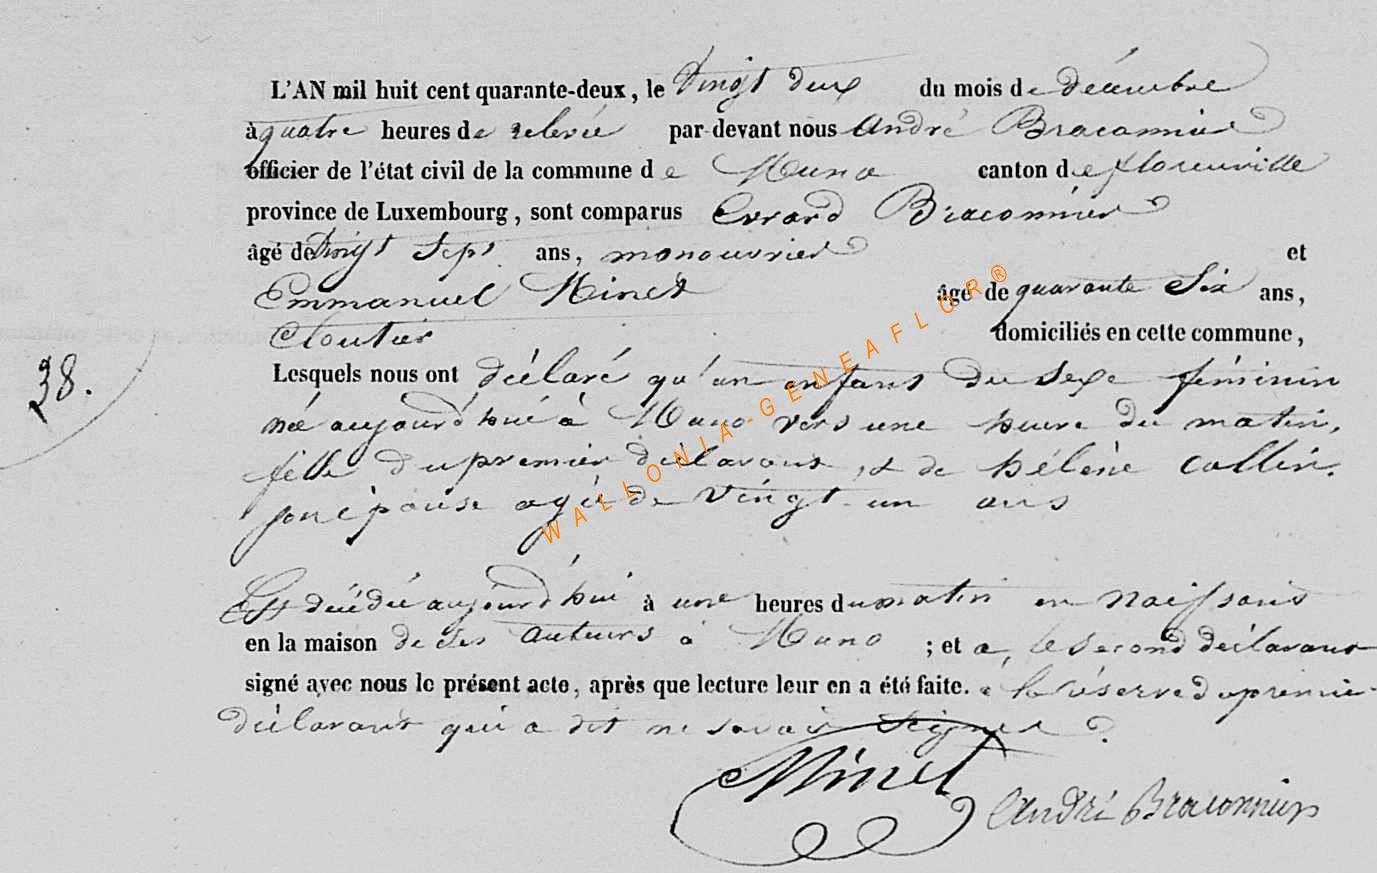 L'AN mil huit cent quarante-deux, le vingt deux du mois de décembre
à quatre heures de relevée par-devant nous André Braconnier
officier de l'état civil de la commune de Muno canton de florenville
province de Luxembourg, sont comparus Evrard Braconnier
âgé de vingt sept ans, manouvrier et
Emmanuel Minet âgé de quarante Six ans,
Cloutier domiciliés en cette commune,
Lesquels nous ont déclaré qu'un enfant du sexe féminin
38.
née aujourd'hui à Muno vers une heure du matin,
fille du premier déclarant, & de hélène Collin,
son épouse agée de vingt-un ans
Est décédée aujourd'hui à une heures du matin en naissant
en la maison de ses auteurs à Muno ; et a, le second déclarant
signé avec nous le présent acte, après que lecture leur en a été faite. a la réserve du premier
déclarant qui a dit ne savoir signer.
Minet
André Braconnier
WALLONIA-GENEAFLOR®